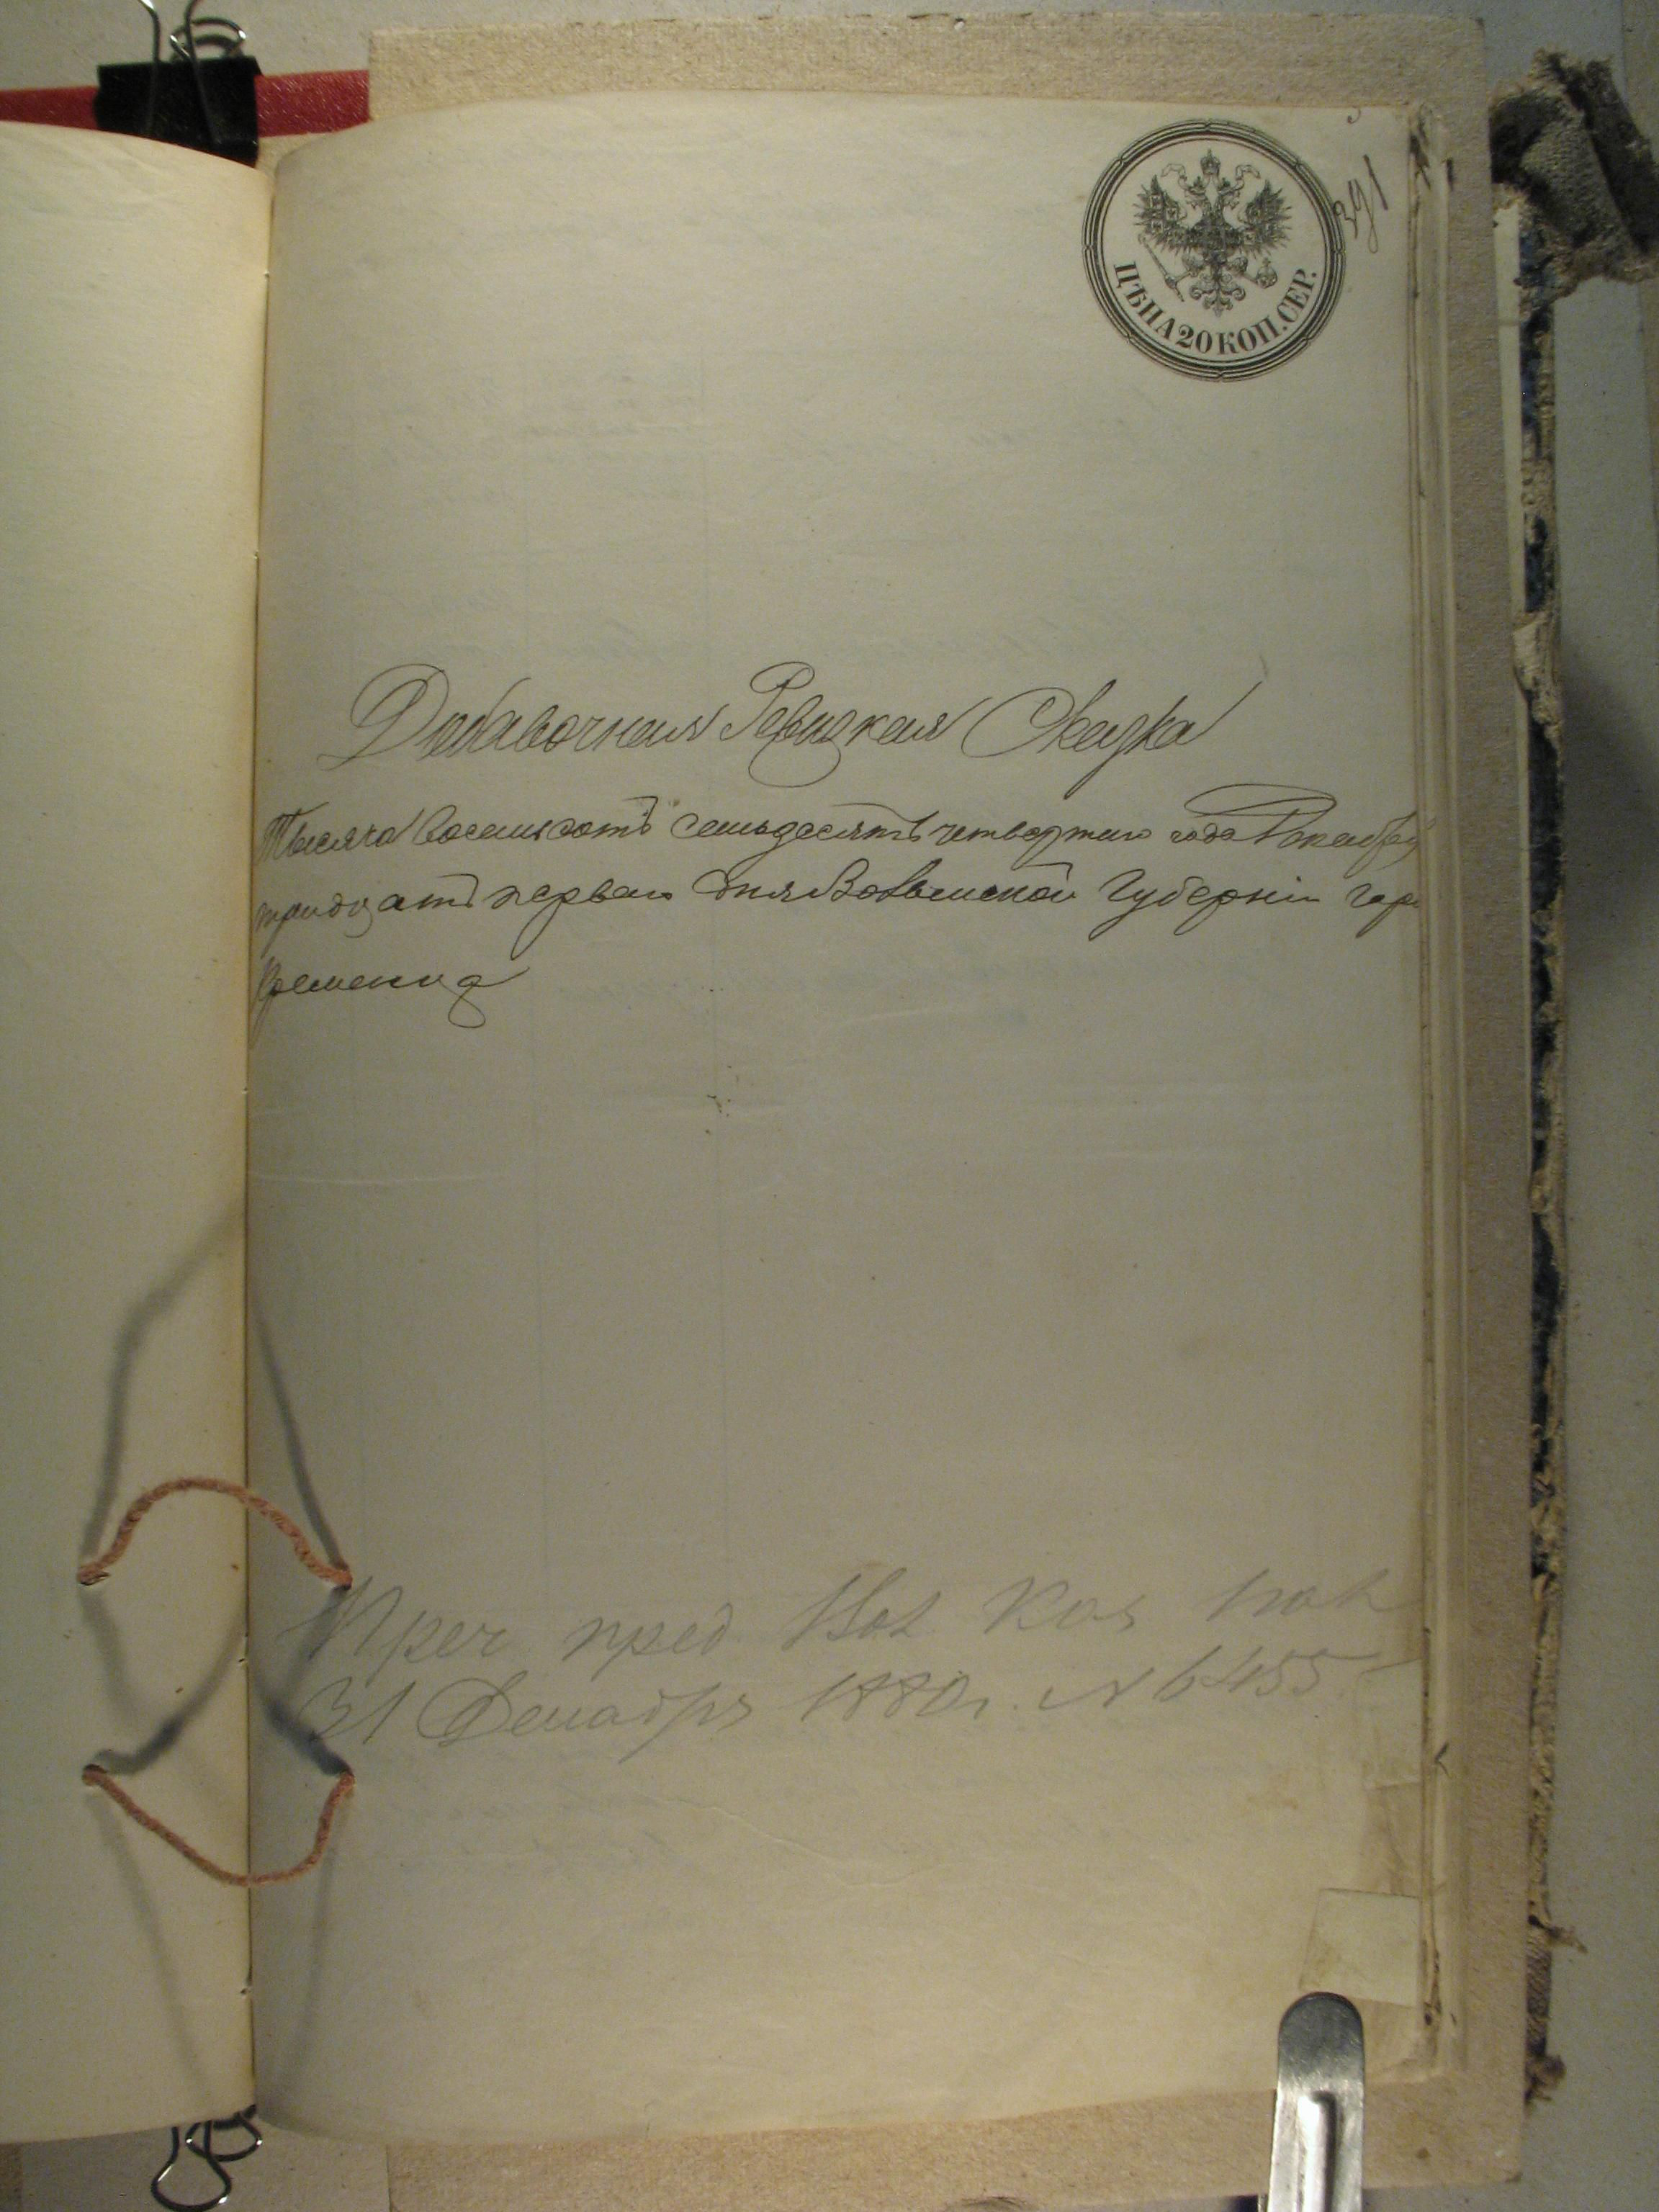 391
ЦѢНА 20 КОП. СЕР.
Добавочная Ревизкая Сказка
Тысяча восемьсотъ семьдесятъ четвертаго года Декабря
тридцать перваго дня Волынской Губерніи гор
Кременца
пред Вол Каз Пал
31 Декабря 1880 г. № 6455